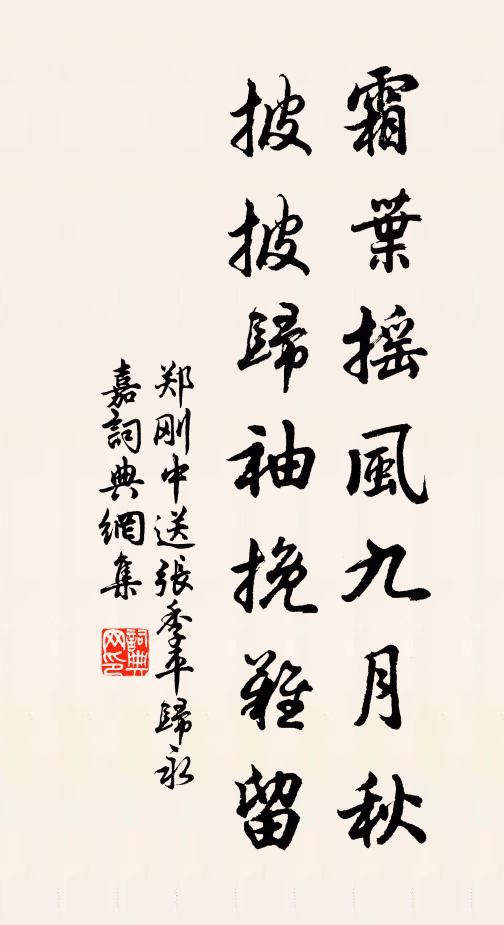 霜葉搖風九月秋
披披歸袖挽難留
郑刚中送張季平歸永
嘉詞典網集
詞典网印